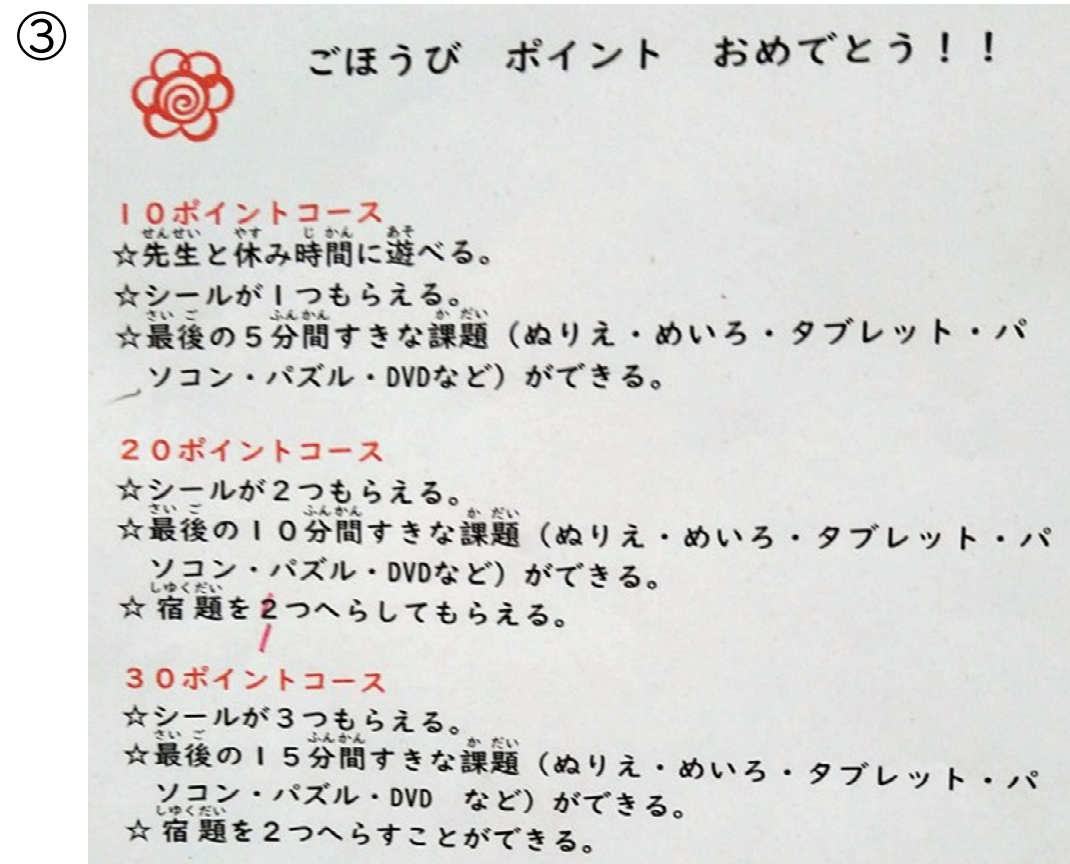 ③
ごほうび　ポイント　おめでとう！！
10ポイントコース
☆先生と休み時間に遊べる。
☆シールが1つもらえる。
☆最後の5分間すきな課題（ぬりえ・めいろ・タブレット・パ
ソコン・パズル・DVDなど）ができる。
20ポイントコース
☆シールが2つもらえる。
☆最後の10分間すきな課題（ぬりえ・めいろ・タブレット・パ
ソコン・パズル・DVDなど）ができる。
☆宿題を2つへらしてもらえる。
1
30ポイントコース
☆シールが3つもらえる。
☆最後の15分間すきな課題（ぬりえ・めいろ・タブレット・パ
ソコン・パズル・DVD　など）ができる。
☆宿題を2つへらすことができる。